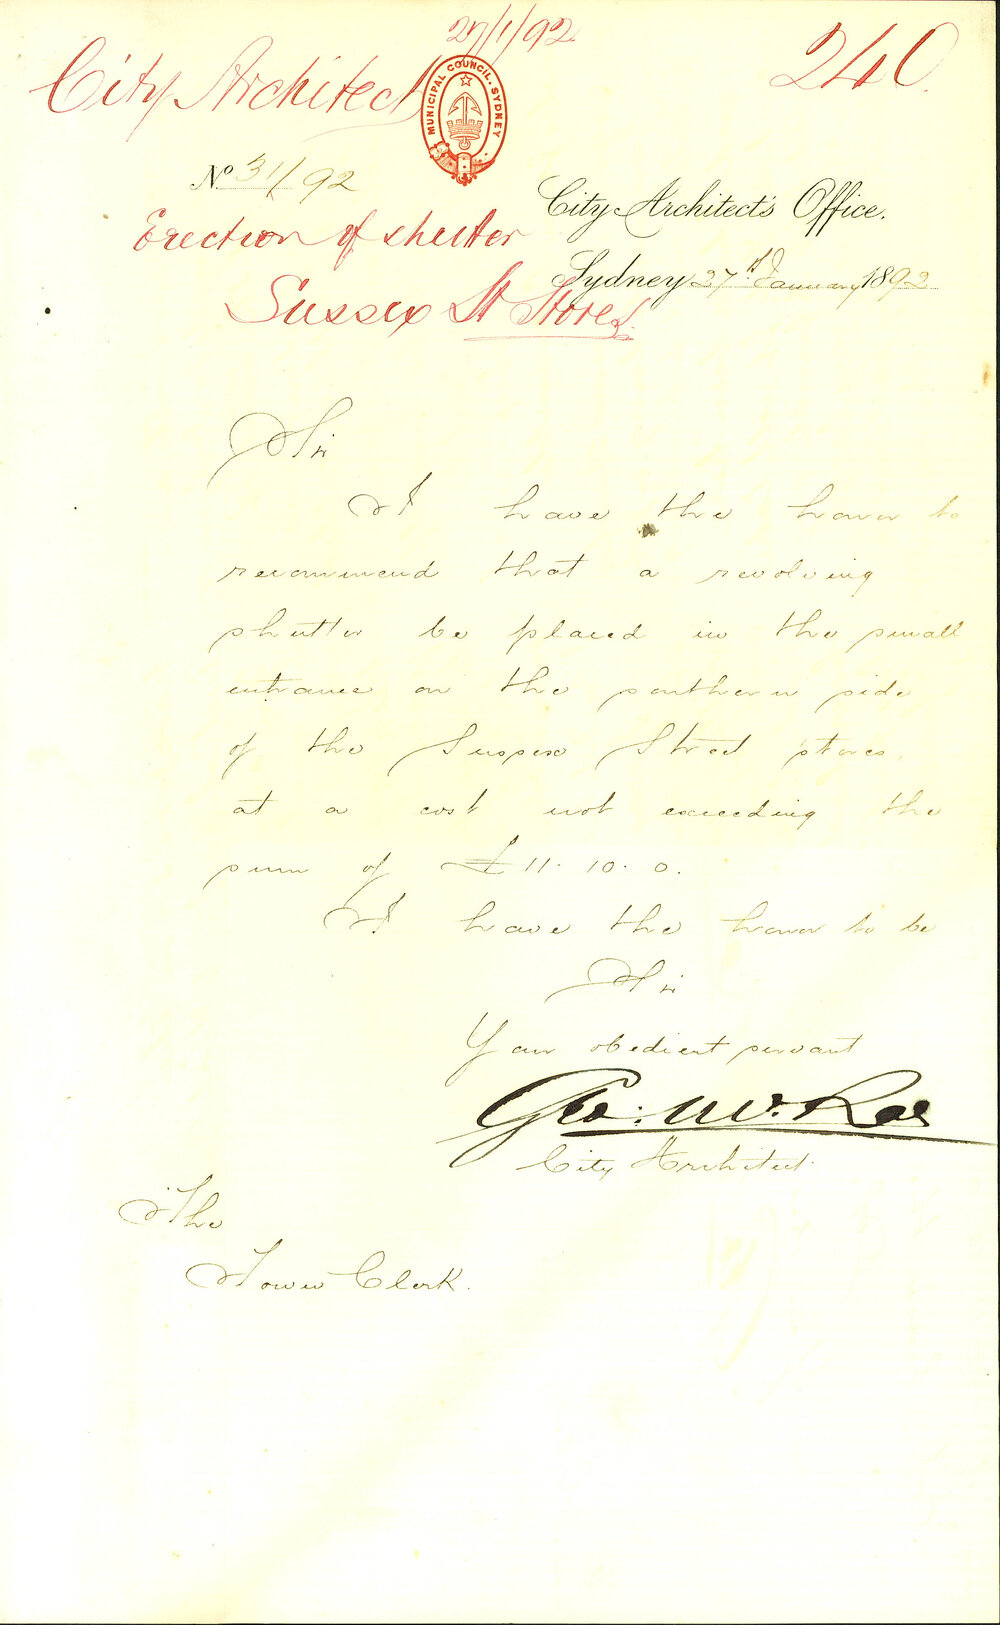 27/1/92
240
City Architect
MUNICIPAL COUNCIL. SYDNEY
No 31/92
City Architect's Office.
Erection of shutter
Sydney 27th January 1892
Sussex St Stores.
Sir
I have the honor to
recommend that a revolving
shutter be placed in the small
entrance on the southern side
of the Sussex Street stores,
at a cost not exceeding the
sum of £11.10.0.
I have the honor to be
Sir
Your obedient servant
Geo: McRae
City Architect.
The
Town Clerk.